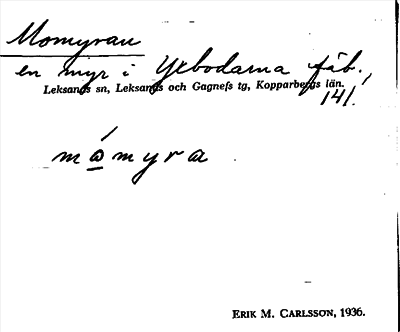 Momyran
en myr i Yxbodarna fäb.,
Leksands sn, Leksands och Gagnefs tg, Kopparbergs län.
141.
mó̲myra
ERIK M. CARLSSON, 1936.